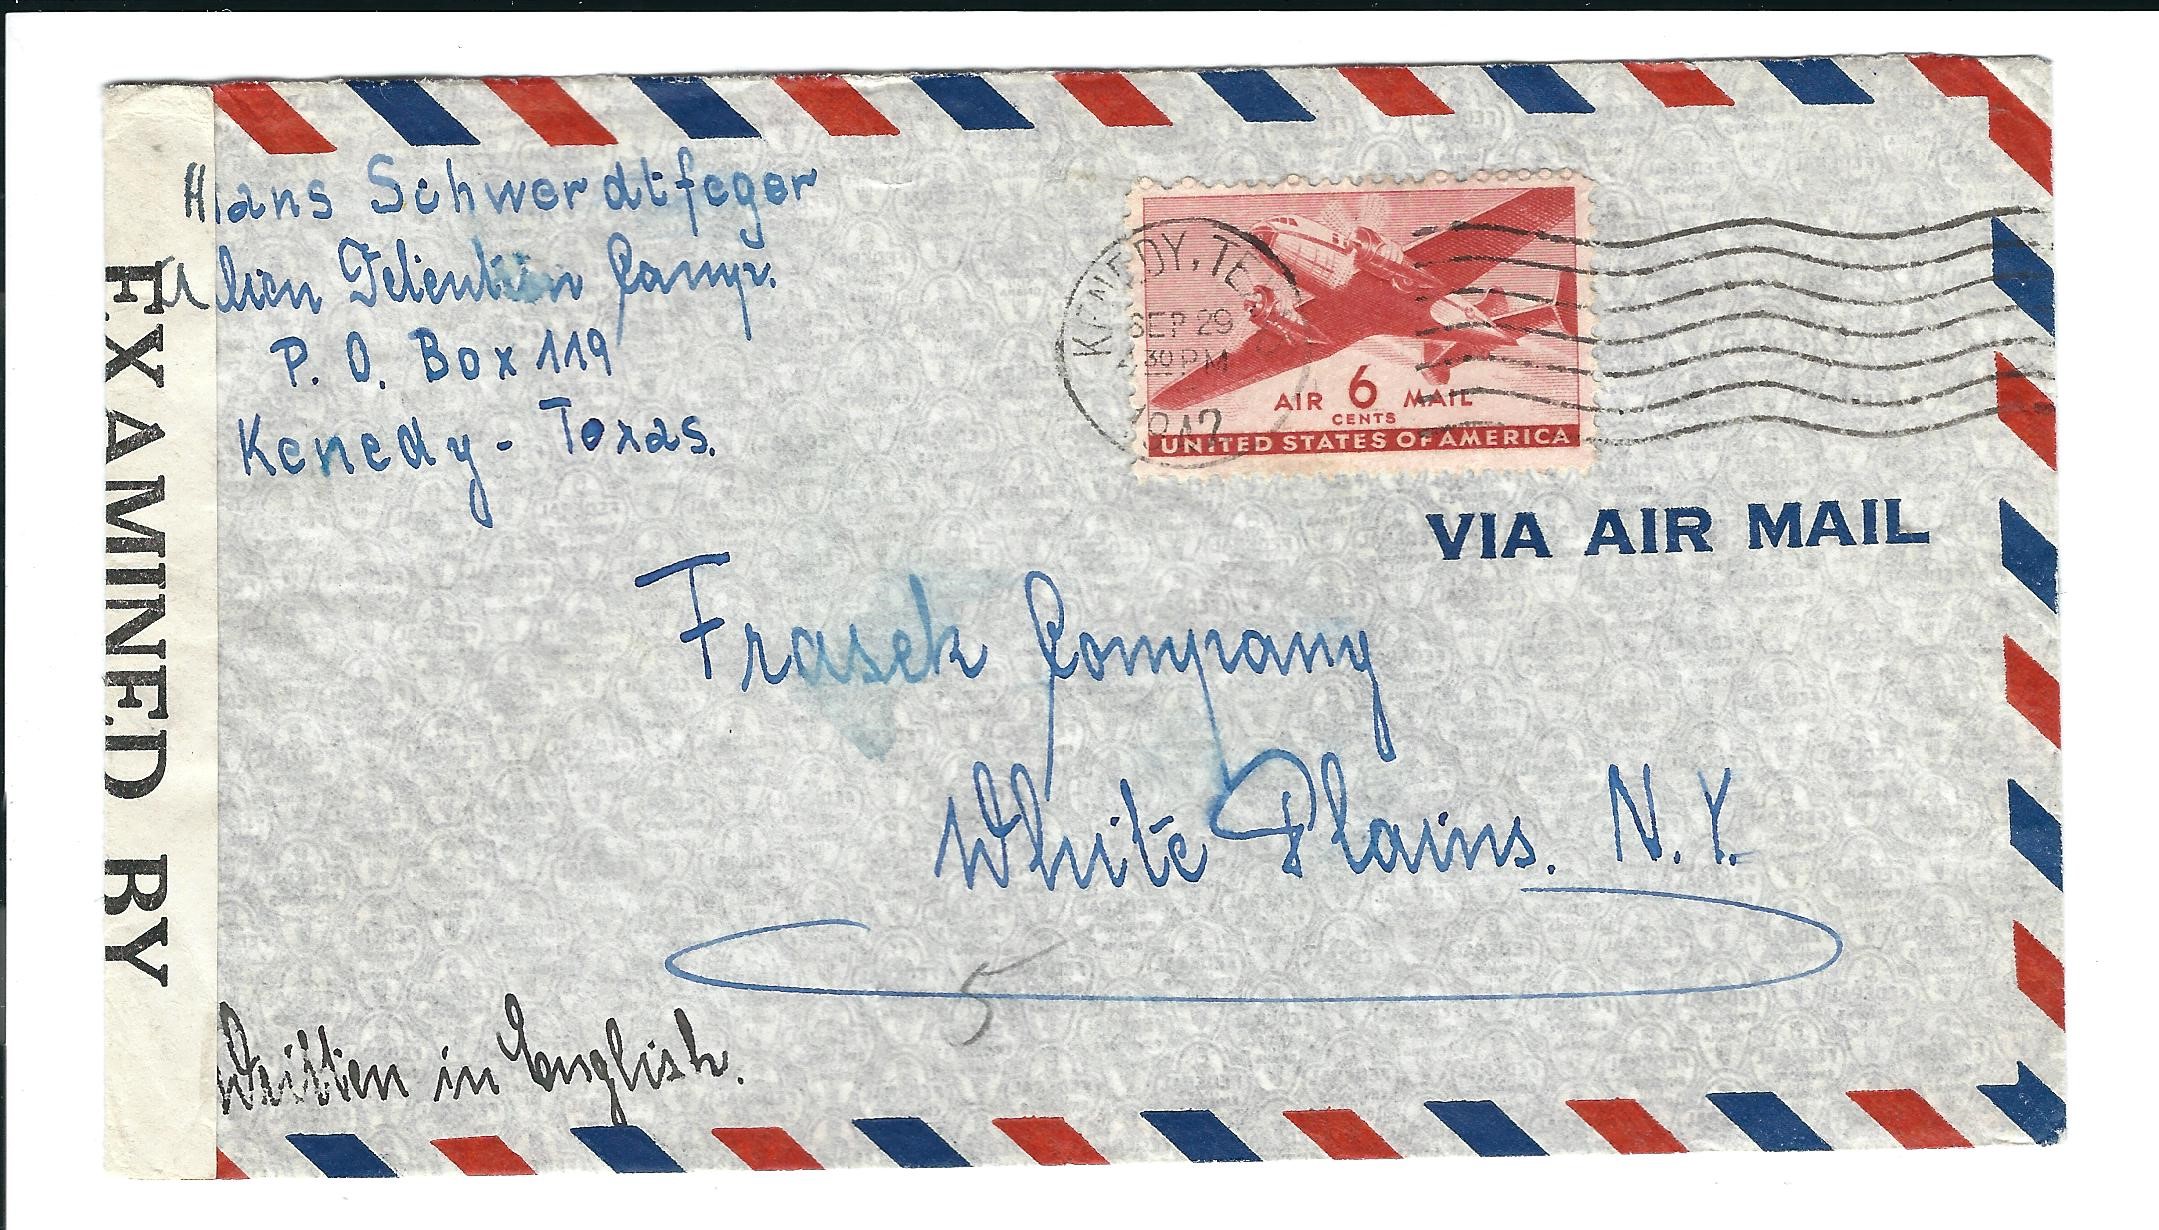 Hans Schwerdtfeger
Alien Detention Camp.
P. O. Box 119
Kenedy - Texas.
EXAMINED BY
KENEDY, TEX
SEP 29
30 PM
1942
AIR 6 MAIL
CENTS
UNITED STATES OF AMERICA
VIA AIR MAIL
Frasek Company
White Plains. N.Y.
5
Written in English.